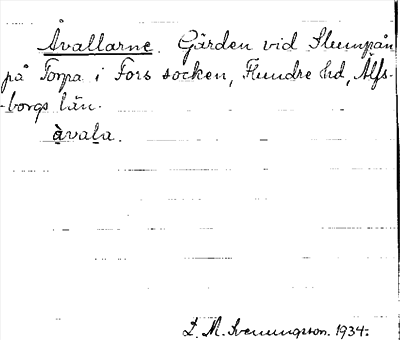 Åvallarne. Gärden vid Slumpån
på Torpa i Fors socken, Flundre hd, Älfs-
borgs län.
àvala.
L. M. Svenungsson. 1934.